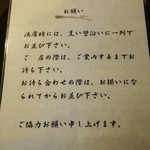 お願い
満席時には、黒い壁沿いに一列で
お並び下さい。
ご　店の際は、ご案内するまでお
待ち下さい。
お待ち合わせの際は、お揃いにな
られてからお並び下さい。
ご協力お願い申し上げます。